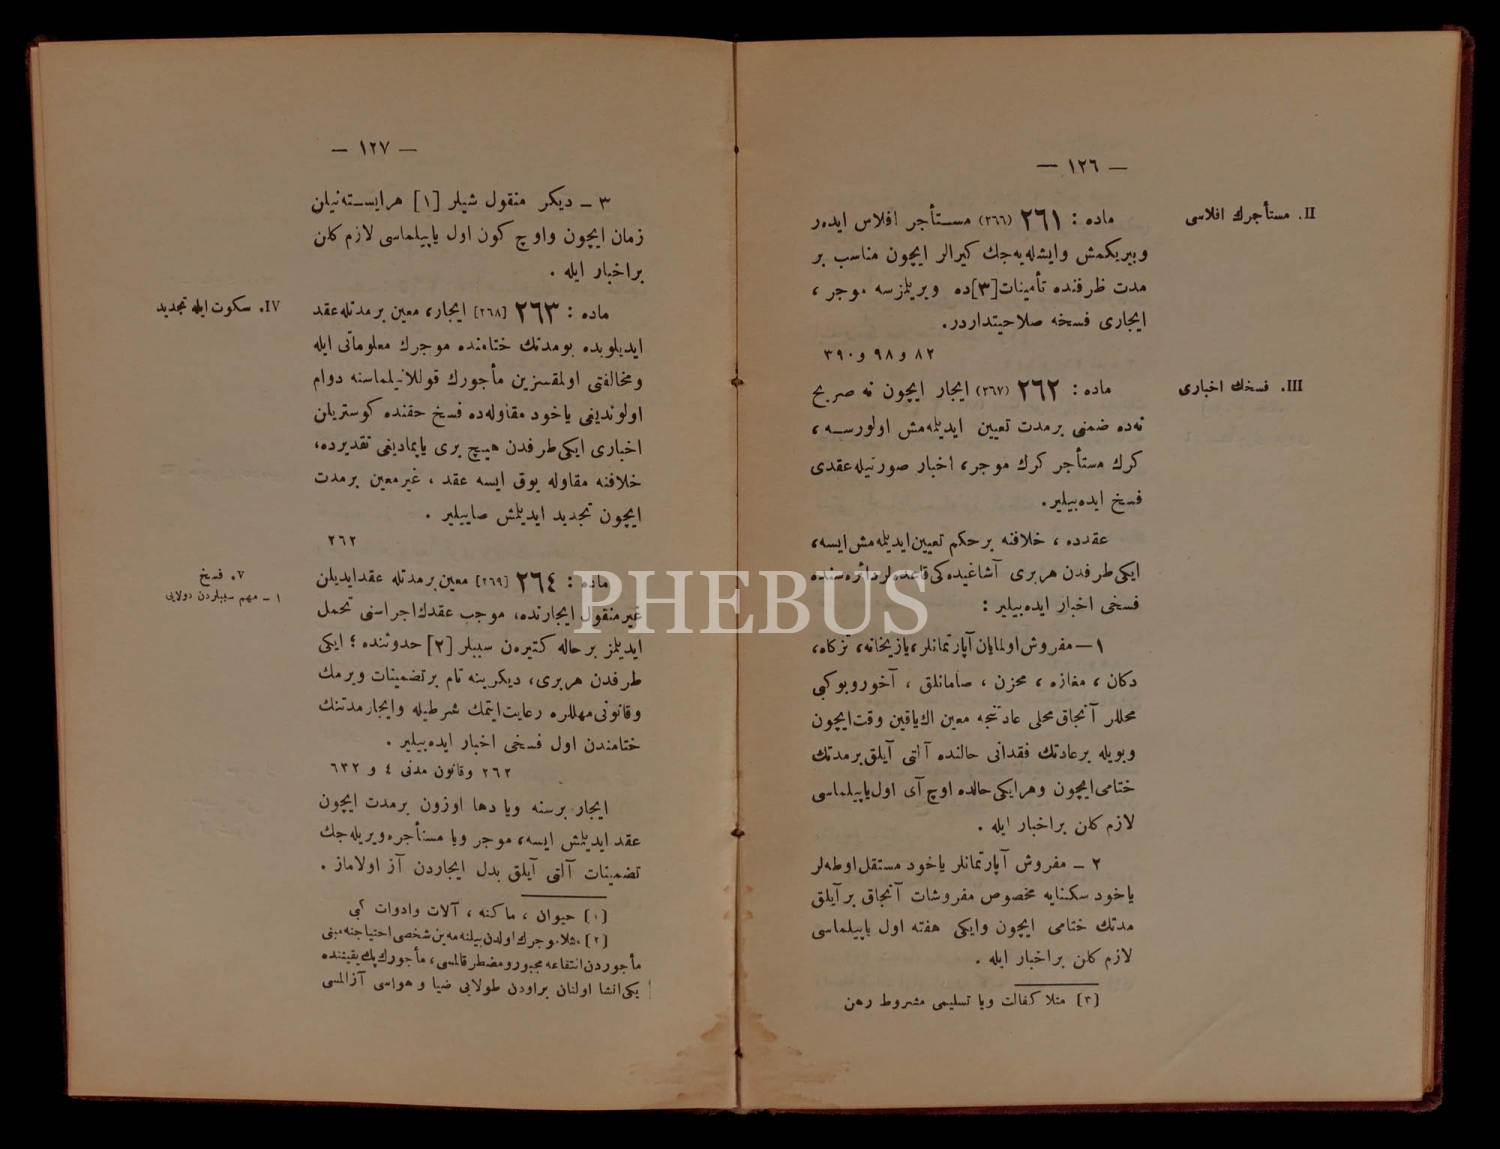 — ١٢٦ —
II. مستأجرك افلاسى
ماده : ٢٦١ (٢٦٦) مستأجر افلاس ايدەر
وبيريكمش وايشلەيەجك كيرالر ايچون مناسب بر
مدت ظرفنده تأمينات[٣]ده ويريلمزسه موجر ،
ايجارى فسخه صلاحيتداردر.
٨٢ و ٩٨ و ٣٩٠
III. فسخك اخبارى
ماده : ٢٦٢ (٢٦٧) ايجار ايچون نه صريح
نەده ضمنى برمدت تعيين ايديلەمش اولورسه ،
كرك مستأجر كرك موجر، اخبار صورتيله عقدى
فسخ ايدەبيلير.
عقدده ، خلافنه برحكم تعيين ايديلەمش ايسه،
ايكى طرفدن هربرى آشاغيدەكى قاعدەلر دائرەسنده
فسخى اخبار ايدەبيلير :
١ — مفروش اولمايان آپارتمانلر، يازيخانه، تزكاه،
دكان ، مغازه ، مخزن ، صامانلق ، آخور وبو كبى
محللر آنجاق محلى عادتنجه معين اك ياقين وقت ايچون
وبويله برعادتك فقدانى حالنده آلتى آيلق برمدتك
ختامى ايچون وهرايكى حالده اوچ آى اول ياپيلماسى
لازم كلن براخبار ايله .
٢ ــ مفروش آپارتمانلر ياخود مستقل اوطەلر
ياخود سكنايه مخصوص مفروشات آنجاق برآيلق
مدتك ختامى ايچون وايكى هفته اول ياپيلماسى
لازم كلن براخبار ايله .
[٣] مثلا كفالت ويا تسليمى مشروط رهن
— ١٢٧ —
٣ ــ ديكر منقول شيلر [١] هرايستەنيلن
زمان ايچون واوچ كون اول ياپيلماسى لازم كلن
براخبار ايله .
IV. سكوت ايله تجديد
ماده : ٢٦٣ [٢٦٨] ايجار، معين برمدتله عقد
ايديلوبده بومدتك ختامنده موجرك معلوماتى ايله
ومخالفتى اولمقسزين مأجورك قوللانيلماسنه دوام
اولونديغى ياخود مقاولەده فسخ حقنده كوستريلن
اخبارى ايكى طرفدن هيچ برى ياپماديغى تقديرده،
خلافنه مقاوله يوق ايسه عقد ، غيرمعين برمدت
ايچون تجديد ايديلمش صاييلير .
٢٦٢
V. فسخ
١ ــ مهم سببلردن دولايى
ماده : ٢٦٤ [٢٦٩] معين برمدتله عقد ايديلن
غيرمنقول ايجارنده، موجب عقدك اجراسنى تحمل
ايديلمز برحاله كتيرەن سببلر [٢] حدوثنده ؛ ايكى
طرفدن هربرى، ديكرينه تام برتضمينات ويرمك
وقانونى مهللره رعايت ايتمك شرطيله وايجار مدتنك
ختامندن اول فسخى اخبار ايدەبيلير .
٢٦٢ وقانون مدنى ٤ و ٦٣٢
ايجار برسنه ويا دها اوزون برمدت ايچون
عقد ايديلمش ايسه، موجر ويا مستأجره ويريلەجك
تضمينات آلتى آيلق بدل ايجاردن آز اولاماز .
[١] حيوان ، ماكنه ، آلات وادوات كبى
[٢] مثلا موجرك اولدن بيلنمەين شخصى احتياجنه مبنى
مأجوردن انتفاعه مجبور ومضطر قالمسى، مأجورك پك يقيننده
يكى انشا اولنان براودن طولايى ضيا و هواسى آزالمسى
PHEBUS